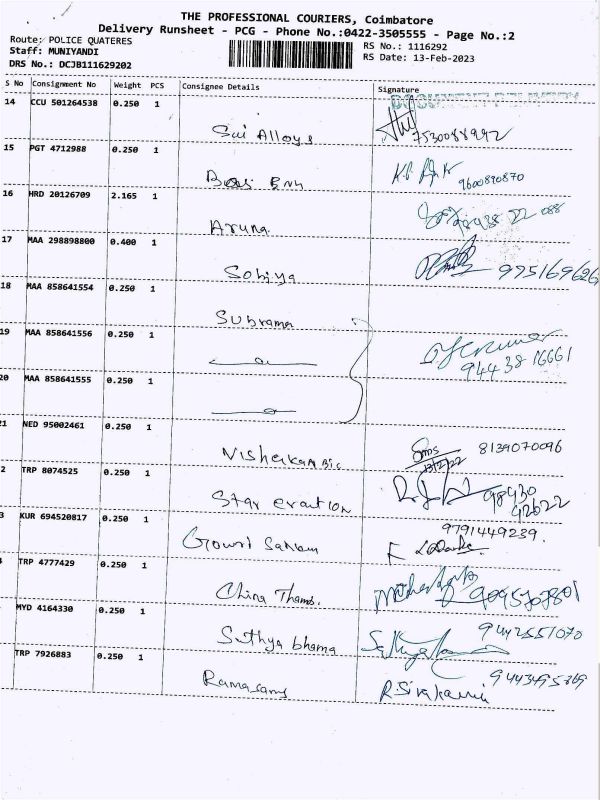 THE PROFESSIONAL COURIERS, Coimbatore
Delivery Runsheet - PCG - Phone No.:0422-3505555 - Page No.:2
Route: POLICE QUATERES
RS No.: 1116292
Staff: MUNIYANDI
RS Date: 13-Feb-2023
DRS No.: DCJB111629202
S No Consignment No Weight PCS Consignee Details Signature
14 CCU 501264538 0.250 1
Sai Alloys 7530088992
15 PGT 4712988 0.250 1
Enn 9600890870
16 HRD 20126709 2.165 1
Aruna
17 MAA 298898800 0.400 1
Sobiya 975169626
18 MAA 858641554 0.250 1
Subrama
19 MAA 858641556 0.250 1
94438 16661
20 MAA 858641555 0.250 1
21 NED 95002461 0.250 1
8139070096
13/2/22
2 TRP 8074525 0.250 1
Star 98430
92622
3 KUR 694520817 0.250 1
9791449239
Gowri
TRP 4777429 0.250 1
China Thams.
MYD 4164330 0.250 1
Sathya bhama 9442551070
TRP 7926883 0.250 1
Ramasamy R. Sivakami